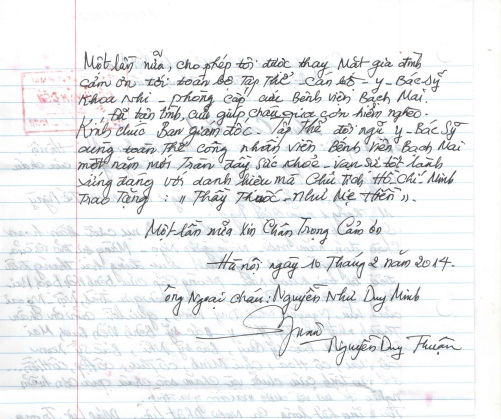 Một lần nữa, cho phép tôi được thay Mặt gia đình
cảm ơn tới toàn bộ Tập Thể - cán bộ - y - Bác Sỹ
Khoa Nhi - phòng cấp cứu Bệnh viện Bạch Mai.
đã tận tình, cứu giúp cháu qua cơn hiểm nghèo.
Kính chúc Ban giám đốc - Tập Thể đội ngũ y - Bác Sỹ
cùng toàn Thể công nhân viên Bệnh viện Bạch Mai
một năm mới Tràn đầy sức khỏe - vạn sự tốt lành
xứng đáng với danh hiệu mà Chủ Tịch Hồ Chí Minh
Trao Tặng : "Thầy Thuốc - như Mẹ Hiền".
Một lần nữa xin Chân Trọng Cảm ơn
Hà nội ngày 10 Tháng 2 năm 2014.
ông Ngoại cháu: Nguyễn Như Duy Minh
Nguyễn Duy Thuận